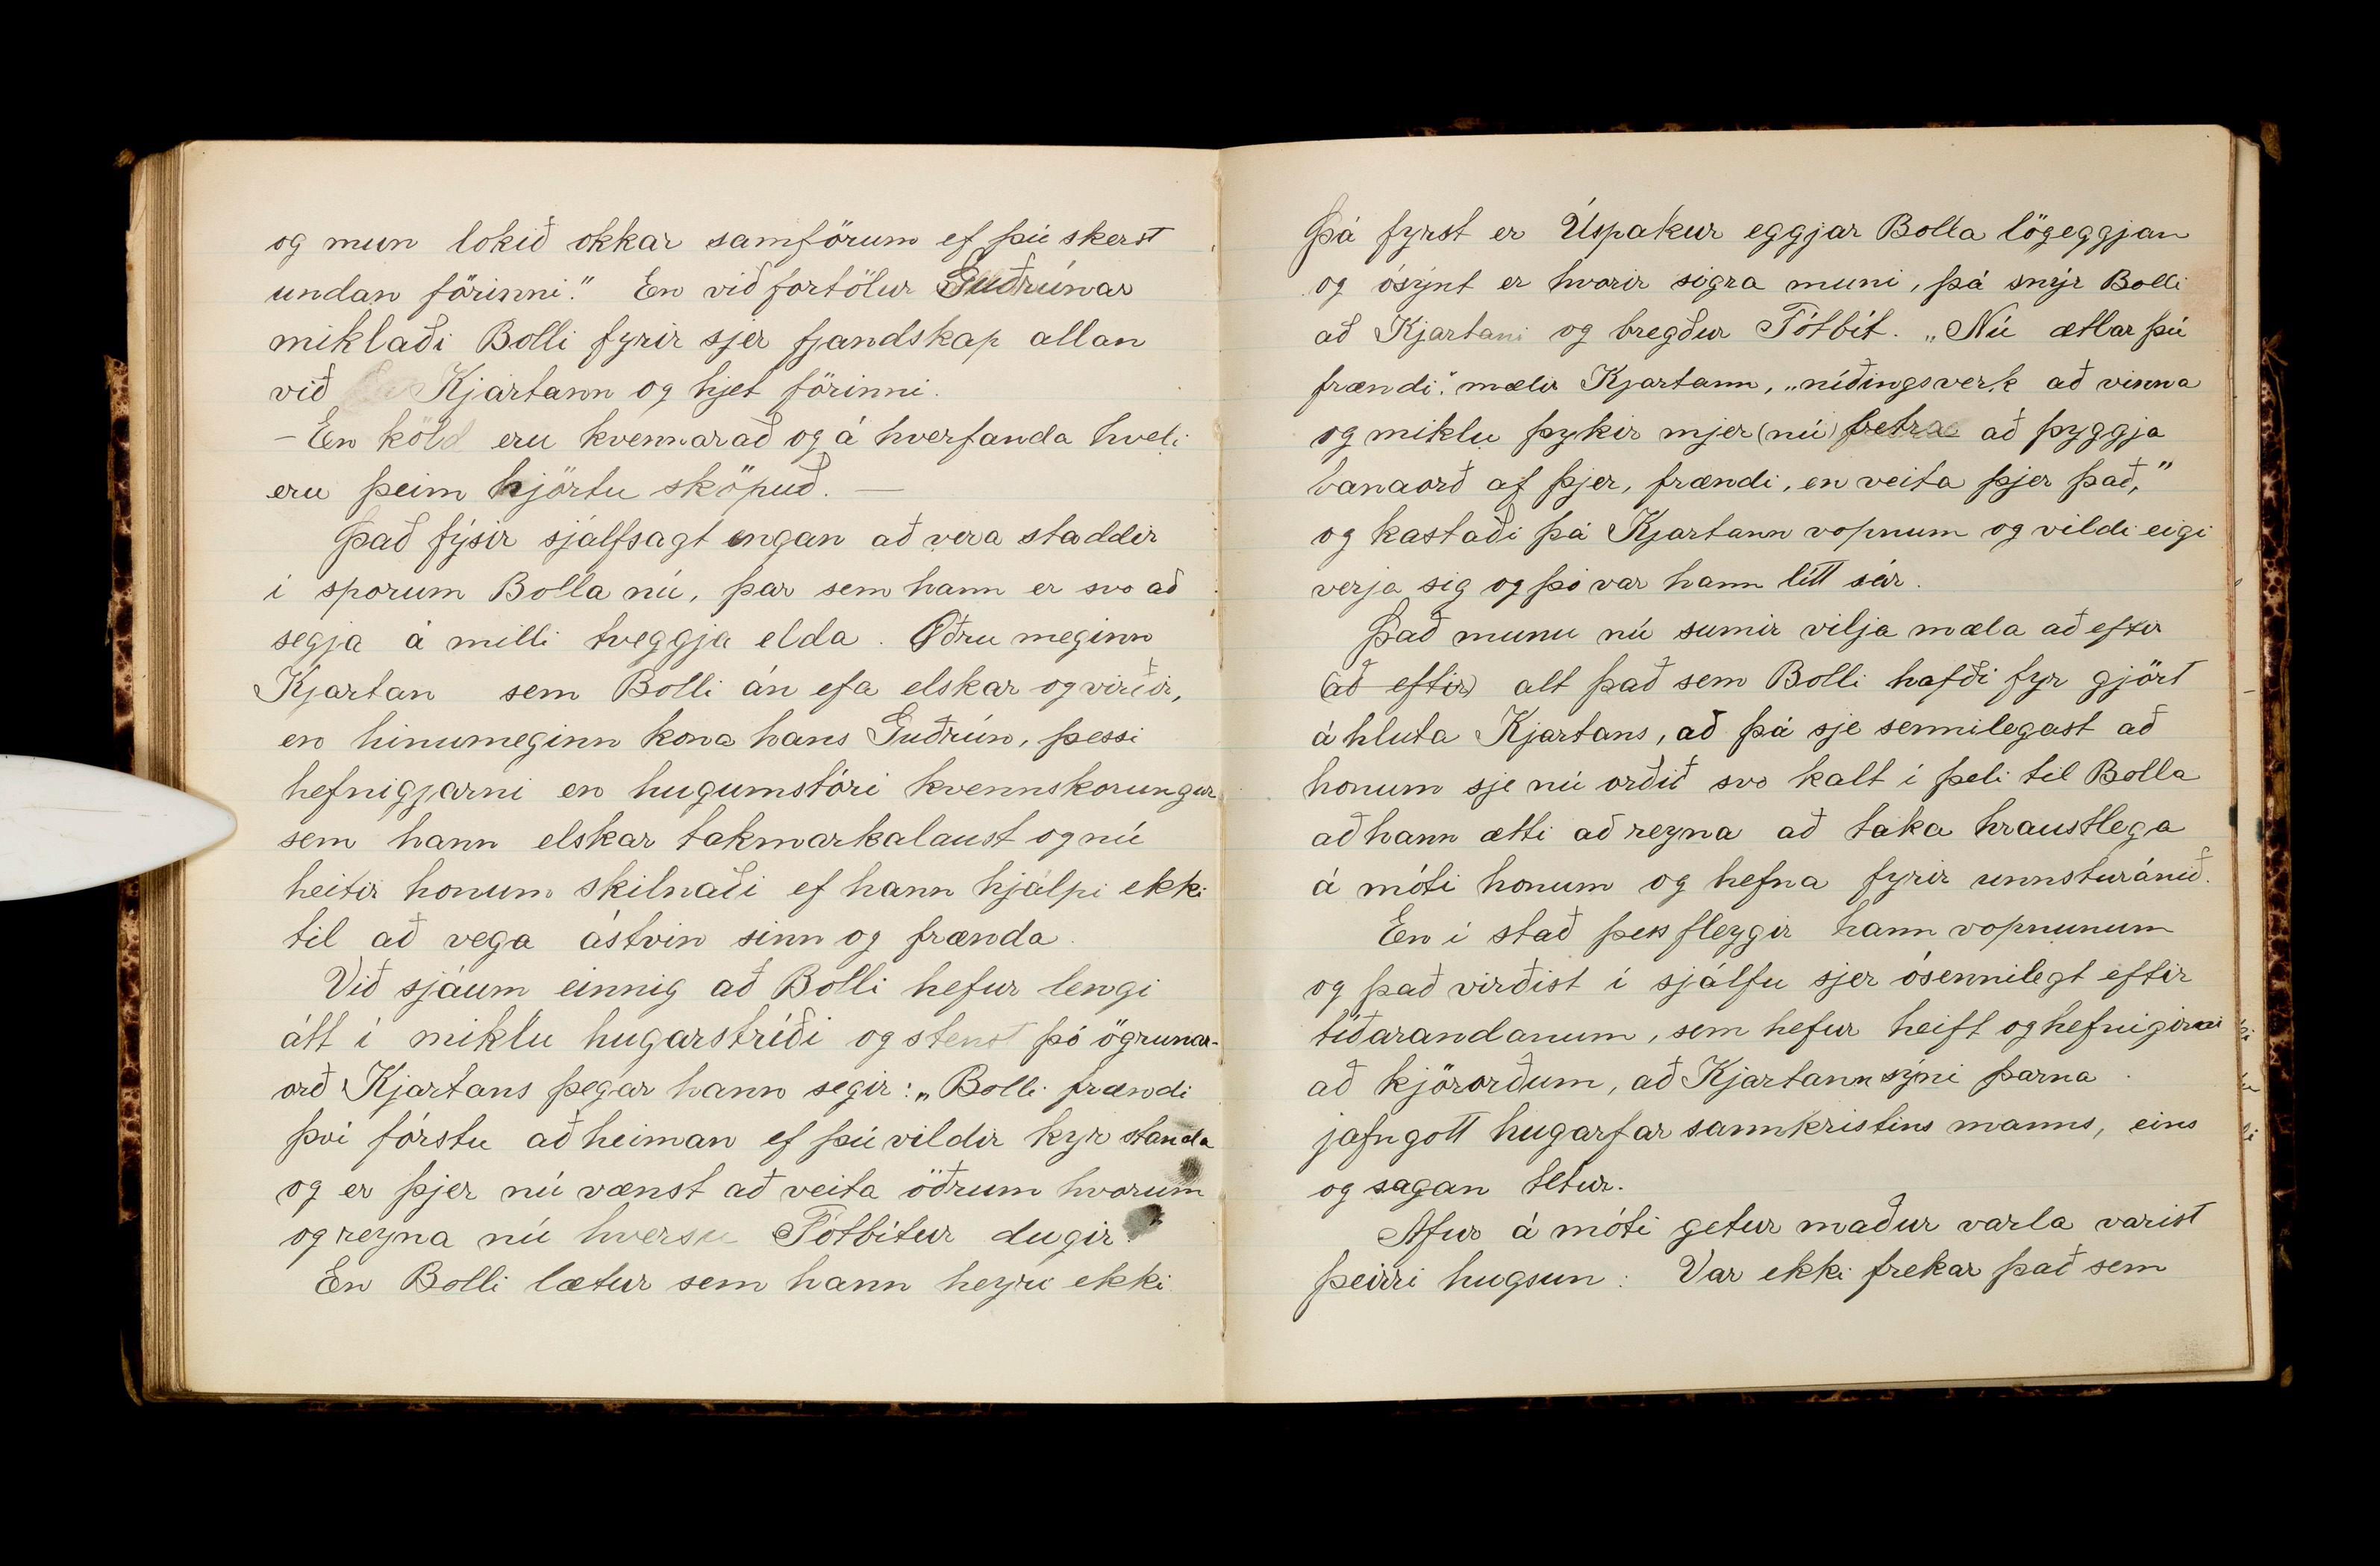 og mun lokið okkar samförum ef þú skerst
undan förinni." En við fortölur Guðrúnar
miklaði Bolli fyrir sjer fjandskap allan
við Kjartann og hjet förinni.
- En köld eru kvennaráð og á hverfanda hveli
eru þeim hjörtu sköpuð. —
Það fýsir sjálfsagt engan að vera staddir
í sporum Bolla nú, þar sem hann er svo að
segja á milli tveggja elda. Öðru meginn
Kjartan sem Bolli án efa elskar og virðir,
en hinumeginn kona hans Guðrún, þessi
hefnigjarni en hugumstóri kvennskorungur
sem hann elskar takmarkalaust og nú
heitir honum skilnaði ef hann hjálpi ekki
til að vega ástvin sinn og frænda.
Við sjáum einnig að Bolli hefur lengi
átt í miklu hugarstríði og stenst þó ögrunar-
orð Kjartans þegar hann segir: „Bolli frændi
því fórstu að heiman ef þú vildir kyr standa
og er þjer nú vænst að veita öðrum hvorum
og reyna nú hversu Fótbítur dugir."
En Bolli lætur sem hann heyri ekki
Þá fyrst er Úspakur eggjar Bolla lögeggjan
og ósýnt er hvorir sigra muni, þá snýr Bolli
að Kjartani og bregður Fótbít. „Nú ætlar þú
frændi," mælir Kjartann, „níðingsverk að vinna
og miklu þykir mjer (nú) betra að þyggja
banaorð af þjer, frændi, en veita þjer það,"
og kastaði þá Kjartann vopnum og vildi eigi
verja sig og þó var hann lítt sár.
Það munu nú sumir vilja mæla að eftir
(að eftir) alt það sem Bolli hafði fyr gjört
á hluta Kjartans, að þá sje sennilegast að
honum sje nú orðið svo kalt í þeli til Bolla
að hann ætti að reyna að taka hraustlega
á móti honum og hefna fyrir unnsturánið.
En í stað þess fleygir hann vopnunum
og það virðist í sjálfu sjer ósennilegt eftir
tíðarandanum, sem hefur heift og hefnigirni
að kjörorðum, að Kjartann sýni þarna
jafngott hugarfar sannkristins manns, eins
og sagan tetur.
Afur á móti getur maður varla varist
þeirri hugsun: Var ekki frekar það sem